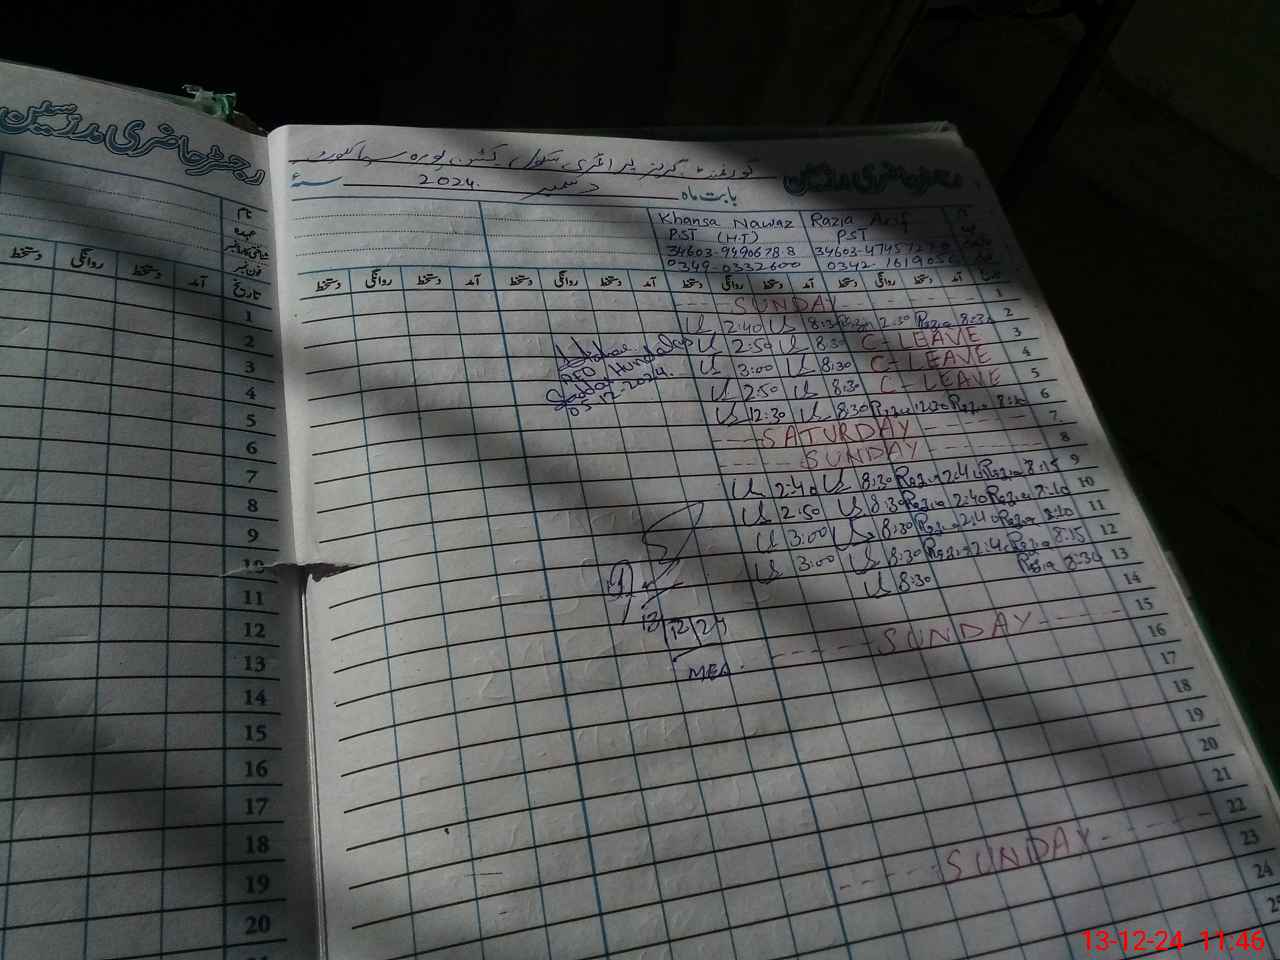 رجسٹر حاضری مدرسین
نام
عہدہ
شناختی کارڈ نمبر
فون نمبر
تاریخ آمد دستخط روانگی دستخط
1
2
3
4
5
6
7
8
9
10
11
12
13
14
15
16
17
18
19
20
گورنمنٹ گرلز پرائمری سکول کشن پورہ
رجسٹر حاضری مدرسین
بابت ماہ دسمبر 2024. سنۂ
نام Razia Arif Khansa Nawaz
PST PST (H.T)
34603-9490678-8
0349-0332600
آمد دستخط روانگی دستخط آمد دستخط روانگی دستخط آمد دستخط روانگی دستخط آمد دستخط روانگی دستخط
1 SUNDAY
2 8:30 Razia 2:30 Razia 8:30 2:40
3 C-LEAVE 8:30 2:50
4 C-LEAVE 8:30 3:00
5 C-LEAVE 8:30 2:50
6 8:20 Razia 12:30 Razia 8:30 12:30
7 SATURDAY
8 SUNDAY
9 8:15 Razia 2:40 Razia 8:30 2:40
10 8:10 Razia 2:40 Razia 8:30 2:50
11 8:10 Razia 2:40 Razia 8:30 3:00
12 8:15 Razia 2:40 Razia 8:30 3:00
13 8:30 Razia 8:30
14
15 SUNDAY
16
17
18
19
20
21
22 SUNDAY
23
24
25
AEO
05-12-2024.
13/12/24
MEA.
13-12-24 11:46